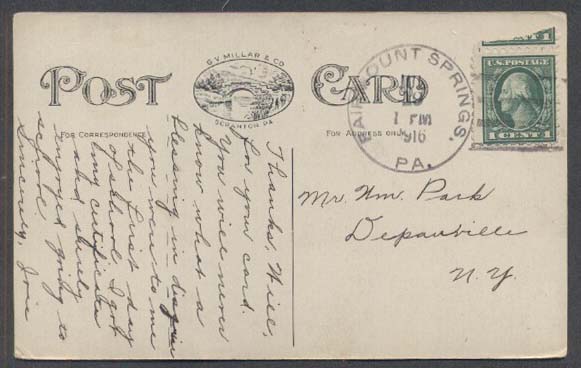 POST CARD
G.V. MILLAR & CO.
SCRANTON PA.
FOR CORRESPONDENCE
FOR ADDRESS ONLY
FAIRMOUNT SPRINGS,
1 PM
1916
PA.
U.S. POSTAGE
1 CENT 1
Mr. Wm. Park
Depauville
N.Y.
Thanks, Will,
for your card.
You will never
know what a
blessing in disguise
you were to me
the first day
of school. I got
my certificate
and surely
enjoyed going to
school.
Sincerely,